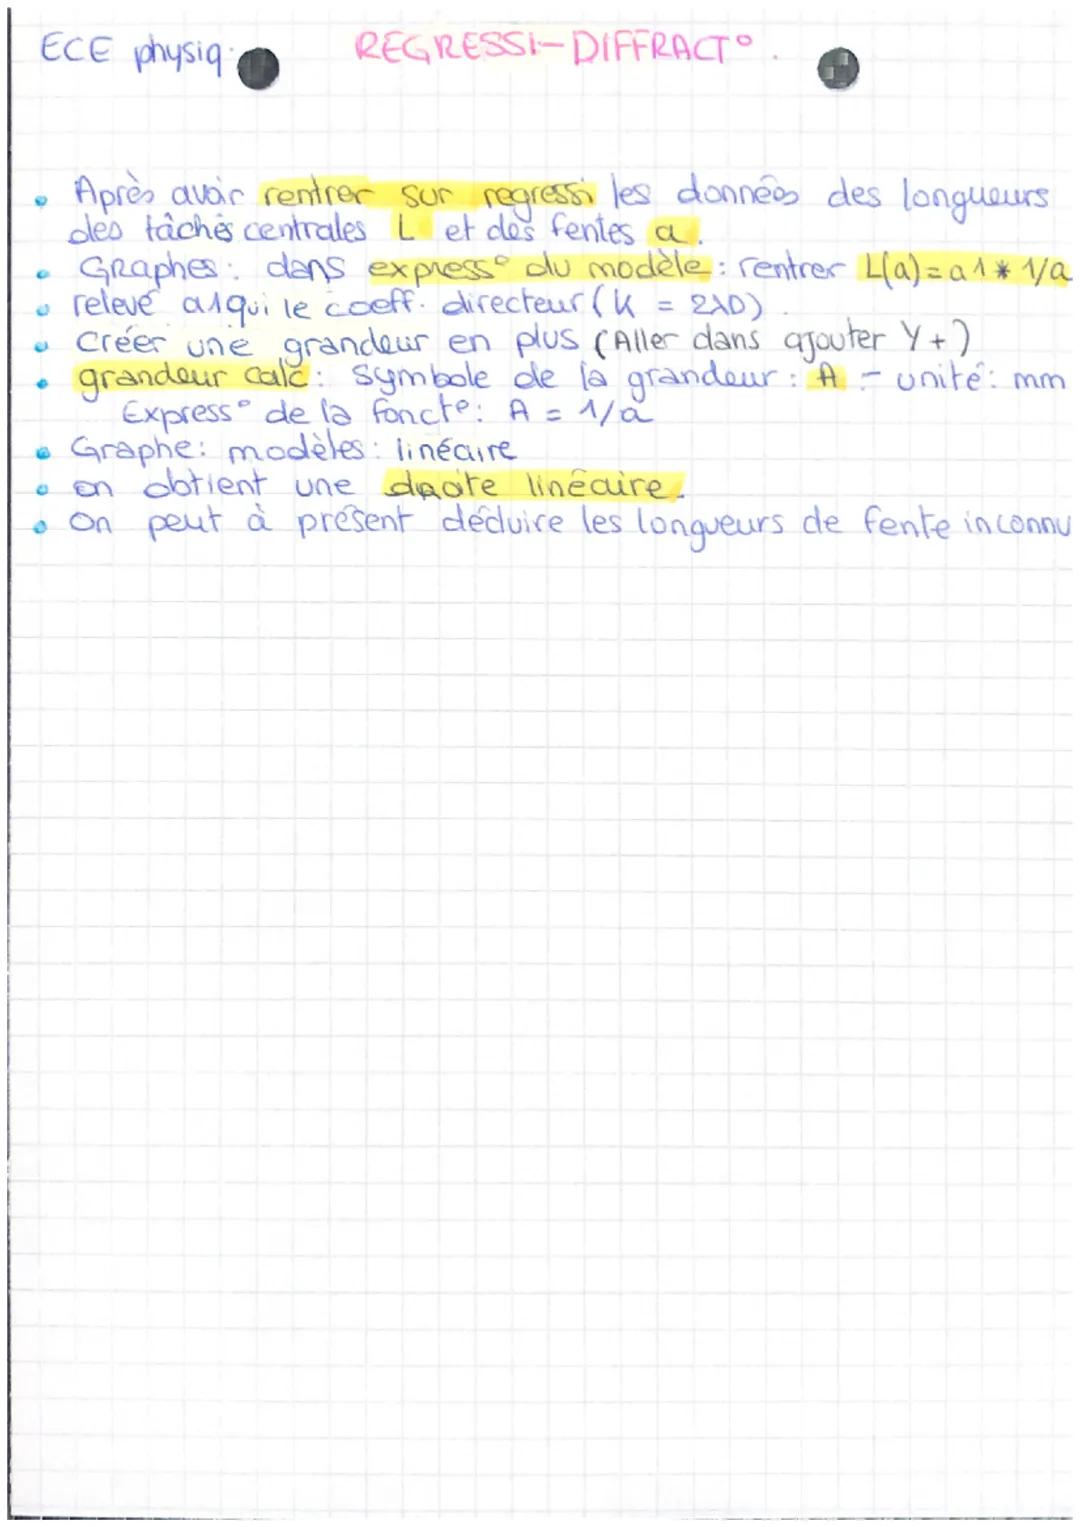 ECE physiq. REGRESSI-DIFFRACT°.
• Après avoir rentrer sur regressi les données des longueurs
des tâches centrales L et des fentes a.
• Graphes: dans express° du modèle: rentrer L(a)=a1*1/a
• relevé a1 qui le coeff. directeur (k = 2λD).
• Créer une grandeur en plus (Aller dans ajouter Y+)
• grandeur calc: symbole de la grandeur: A - unité: mm
Express° de la foncte: A = 1/a
• Graphe: modèles: linéaire
• on obtient une droite linéaire.
• On peut à présent déduire les longueurs de fente inconnu